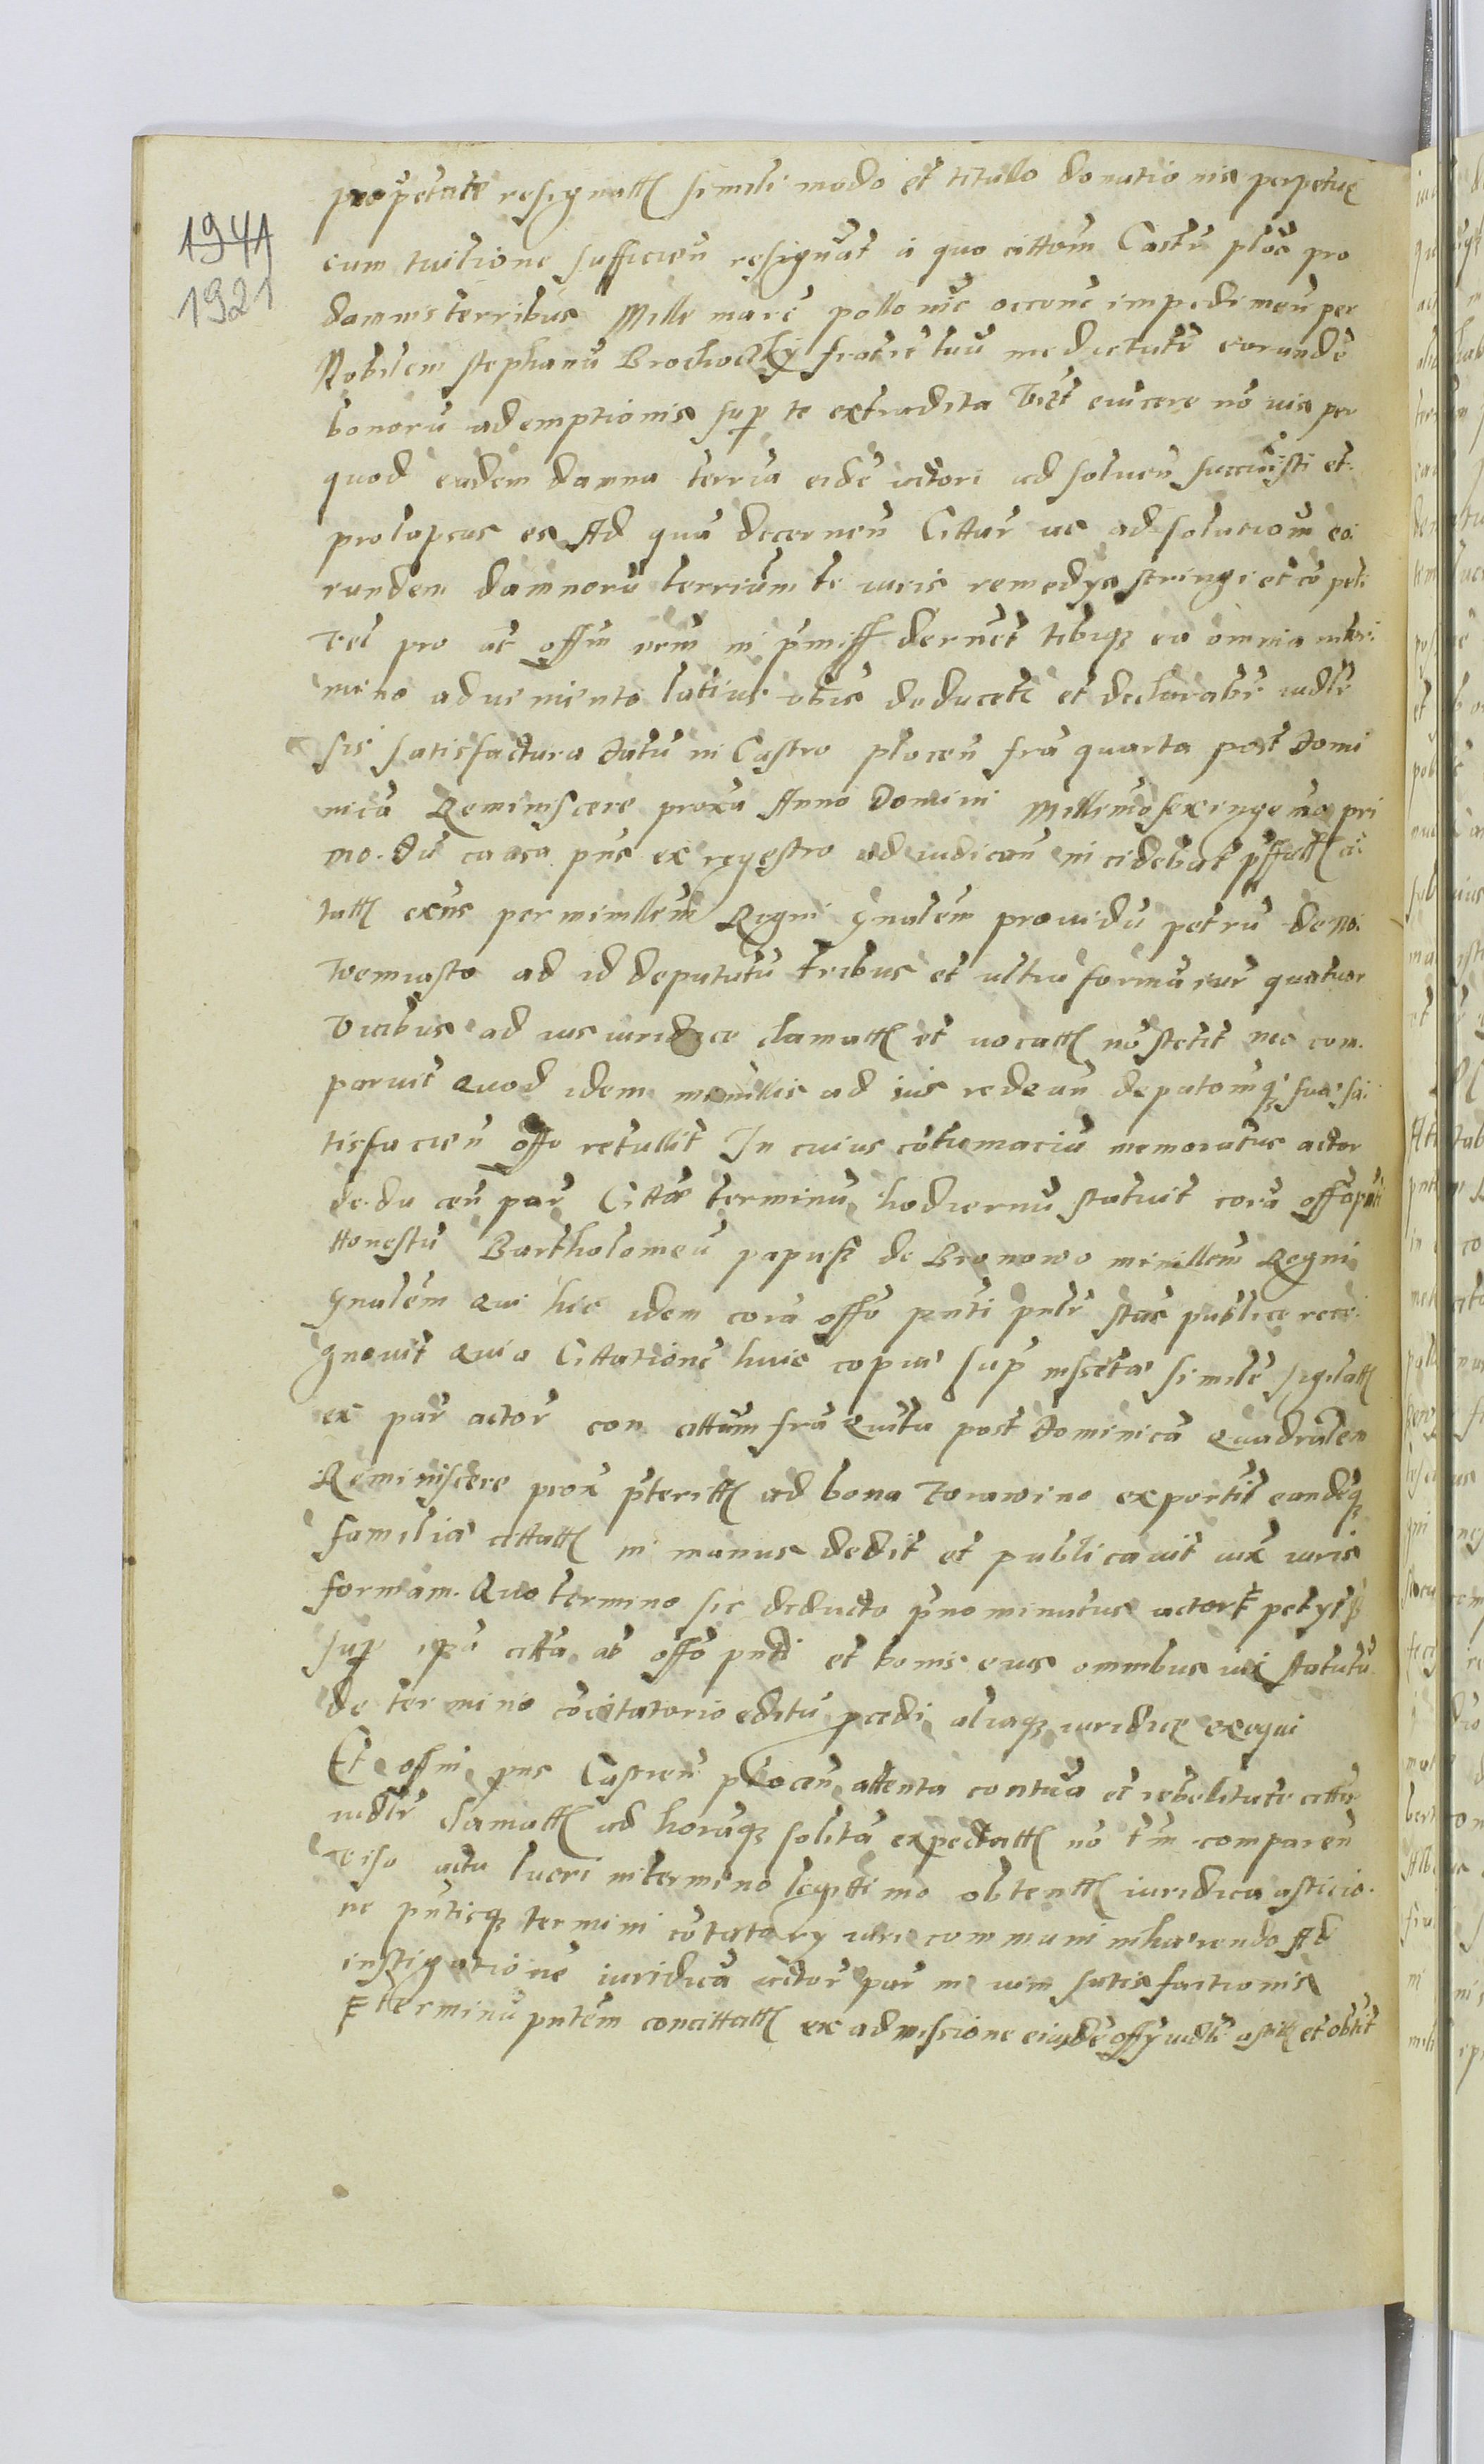 1941
1921
propetate resignatt simili modo et titulo donationis perpetuę
cum tuitione sufficien resignat a quo cittom Castrū ploc̄ pro
damnis terribus Mille marc̄ pollonic̄ occone impedimen̄ per
Nobilem stephanū Brochoczky fratrē tuū medietatē eorundē
bonorū ademptionis sup te extradita eiicere nō vis per
quod eadem damna terria eidē actori ad soluen̄ succuisti et
prolapsus es Ad quā decernen̄ Cittar̄ ac ad solutiom eo
rundem damnorū terrium te iuris remedys stringi et cōpelli
vel pro ut offm nrm in p̄miss̄ decrnet tibiq ea omnia in ter
mino adveniento latius deducetr̄ et declarabr̄ iudlr̄
sis satisfactura Datū in Castro plocen̄ fr̄a quarta post domi
nicā Reminiscere proxa Anno Domini Millimo sexingemo pri
mo. Dū causa pn̄s ex regestro ad iudicān incidebat p̄ffatt ci
tatt exn̄s per minllem Regni Gn̄alem providū petrū de No
wemiasto ad id deputatū tribus et ultra formā iur̄ quatuor
vicibus ad ius iuridice clamatt et vocatt nō stetit nec com
paruit Quod idem minllis ad ius redeān deputōmq suā sa
tisfacien̄ offo retullit In cuius cōtumaciā memoratus actor
deducen̄ par Cittōe terminū hodiernū statuit corā offo pn̄ti
Honestū Bartholomeū papiesz de Bronowo minllem Regni
Gn̄alem Qui hic idem corā offo pn̄ti pn̄lr̄ stās publice reco
gnovit Quia Cittationē huic copiā sup insertā similē sigilatt
ex par actor̄ con cittam fr̄a Quīta post Dominicā Quadrālem
Reminiscere prox̄ p̄teritt ad bona Torawino exportāt eandēq
familiā cittatt in manus dedit et publicavit iux̄ iuris
formam. Quo termino sic deducto p̄nominatus actor petyt
sup ip̄ā cittā ab offo pn̄ti et bonis eius omnibus iux̄ statutū
de termino cōcitatorio editū p̄cedi aliaq iuridice exequi
Et offm pn̄s Castren̄ plocen̄ attenta contūa et rebelitate citta
iudlr̄ clamatt ad horāq solitā expectatt nō tm̄ comparen̄
lucri in termino legittimo obtentt iuridica asticio
ne pn̄tisq termini cōtatory iuri communi inhærendo Ad
instigationē iuridicā actor̄ par in vim satisfactionis
terminū pn̄tem concittatt ex admissione eiusdē offy iudlr̄ astitt et obtīt